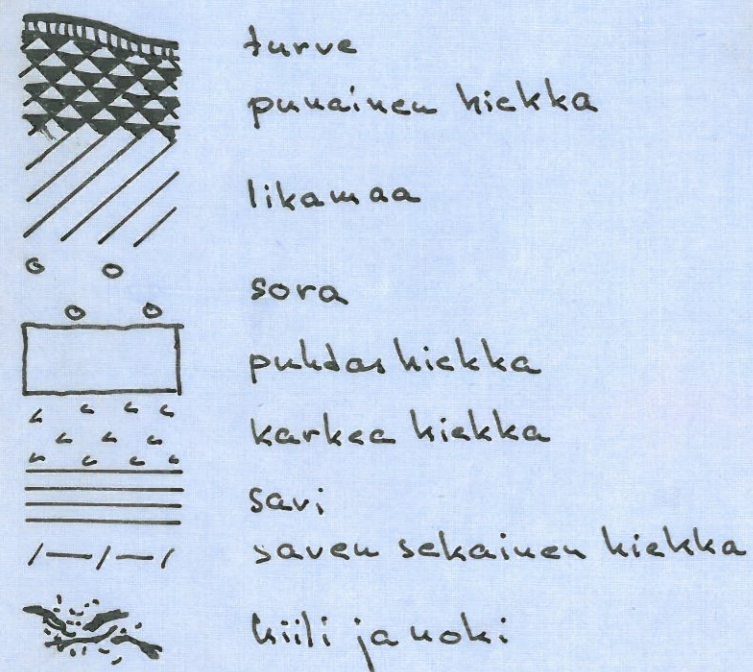 turve
punainen hiekka
likamaa
sora
puhdas hiekka
karkea hiekka
savi
saven sekainen hiekka
hiili ja noki